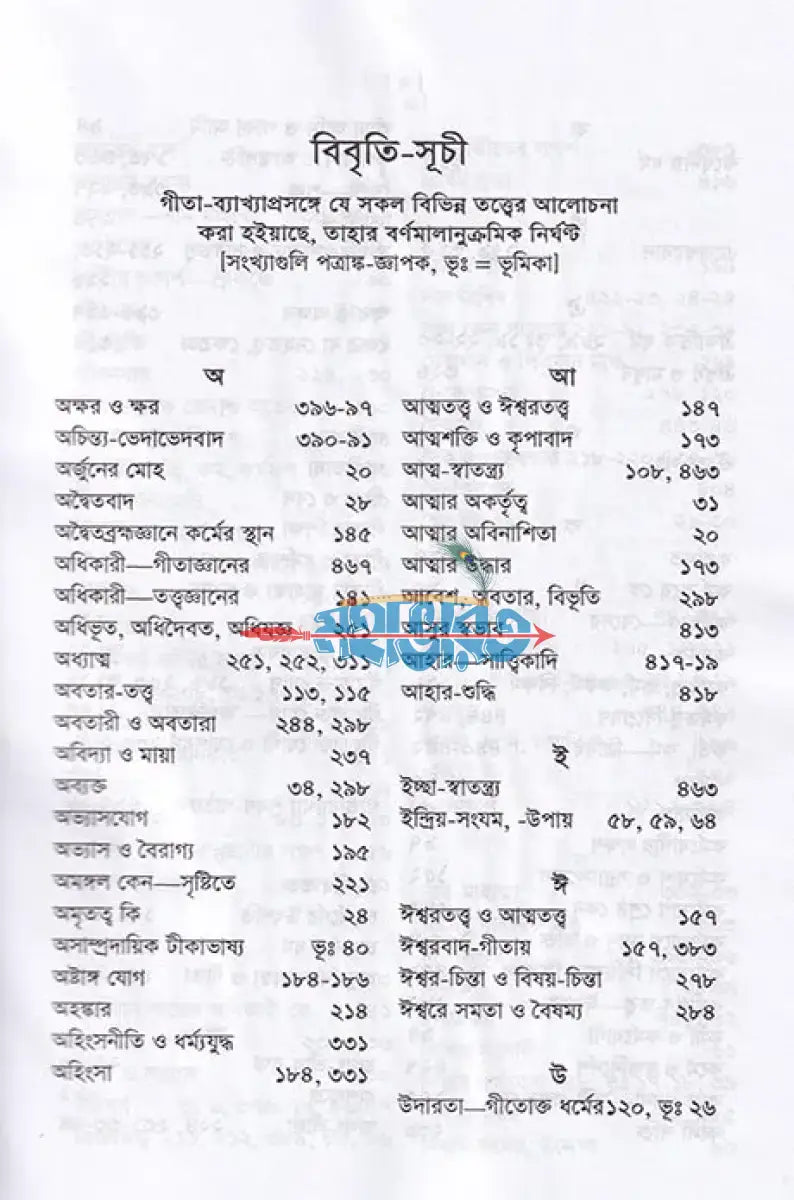 বিবৃতি-সূচী
গীতা-ব্যাখ্যাপ্রসঙ্গে যে সকল বিভিন্ন তত্ত্বের আলোচনা
করা হইয়াছে, তাহার বর্ণমালানুক্রমিক নির্ঘণ্ট
[সংখ্যাগুলি পত্রাঙ্ক-জ্ঞাপক, ভূঃ = ভূমিকা]
অ
অক্ষর ও ক্ষর ৩৯৬-৯৭
অচিন্ত্য-ভেদাভেদবাদ ৩৯০-৯১
অর্জুনের মোহ ২০
অদ্বৈতবাদ ২৮
অদ্বৈতব্রহ্মজ্ঞানে কর্মের স্থান ১৪৫
অধিকারী—গীতাজ্ঞানের ৪৬৭
অধিকারী—তত্ত্বজ্ঞানের ১৪১
অধিভূত, অধিদৈবত, অধিযজ্ঞ ২৫১
অধ্যাত্ম ২৫১, ২৫২, ৩১১
অবতার-তত্ত্ব ১১৩, ১১৫
অবতারী ও অবতারা ২৪৪, ২৯৮
অবিদ্যা ও মায়া ২৩৭
অব্যক্ত ৩৪, ২৯৮
অভ্যাসযোগ ১৮২
অভ্যাস ও বৈরাগ্য ১৯৫
অমঙ্গল কেন—সৃষ্টিতে ২২১
অমৃতত্ব কি ২৪
অসাম্প্রদায়িক টীকাভাষ্য ভূঃ ৪০
অষ্টাঙ্গ যোগ ১৮৪-১৮৬
অহঙ্কার ২১৪
অহিংসনীতি ও ধর্ম্যযুদ্ধ ৩৩১
অহিংসা ১৮৪, ৩৩১
আ
আত্মতত্ত্ব ও ঈশ্বরতত্ত্ব ১৪৭
আত্মশক্তি ও কৃপাবাদ ১৭৩
আত্ম-স্বাতন্ত্র্য ১০৮, ৪৬৩
আত্মার অকর্তৃত্ব ৩১
আত্মার অবিনাশিতা ২০
আত্মার উদ্ধার ১৭৩
আবেশ, অবতার, বিভূতি ২৯৮
আসুর স্বভাব ৪১৩
আহার—সাত্ত্বিকাদি ৪১৭-১৯
আহার-শুদ্ধি ৪১৮
ই
ইচ্ছা-স্বাতন্ত্র্য ৪৬৩
ইন্দ্রিয়-সংযম, -উপায় ৫৮, ৫৯, ৬৪
ঈ
ঈশ্বরতত্ত্ব ও আত্মতত্ত্ব ১৫৭
ঈশ্বরবাদ-গীতায় ১৫৭, ৩৮৩
ঈশ্বর-চিন্তা ও বিষয়-চিন্তা ২৭৮
ঈশ্বরে সমতা ও বৈষম্য ২৮৪
উ
উদারতা—গীতোক্ত ধর্মের ১২০, ভূঃ ২৬
মহাভারত